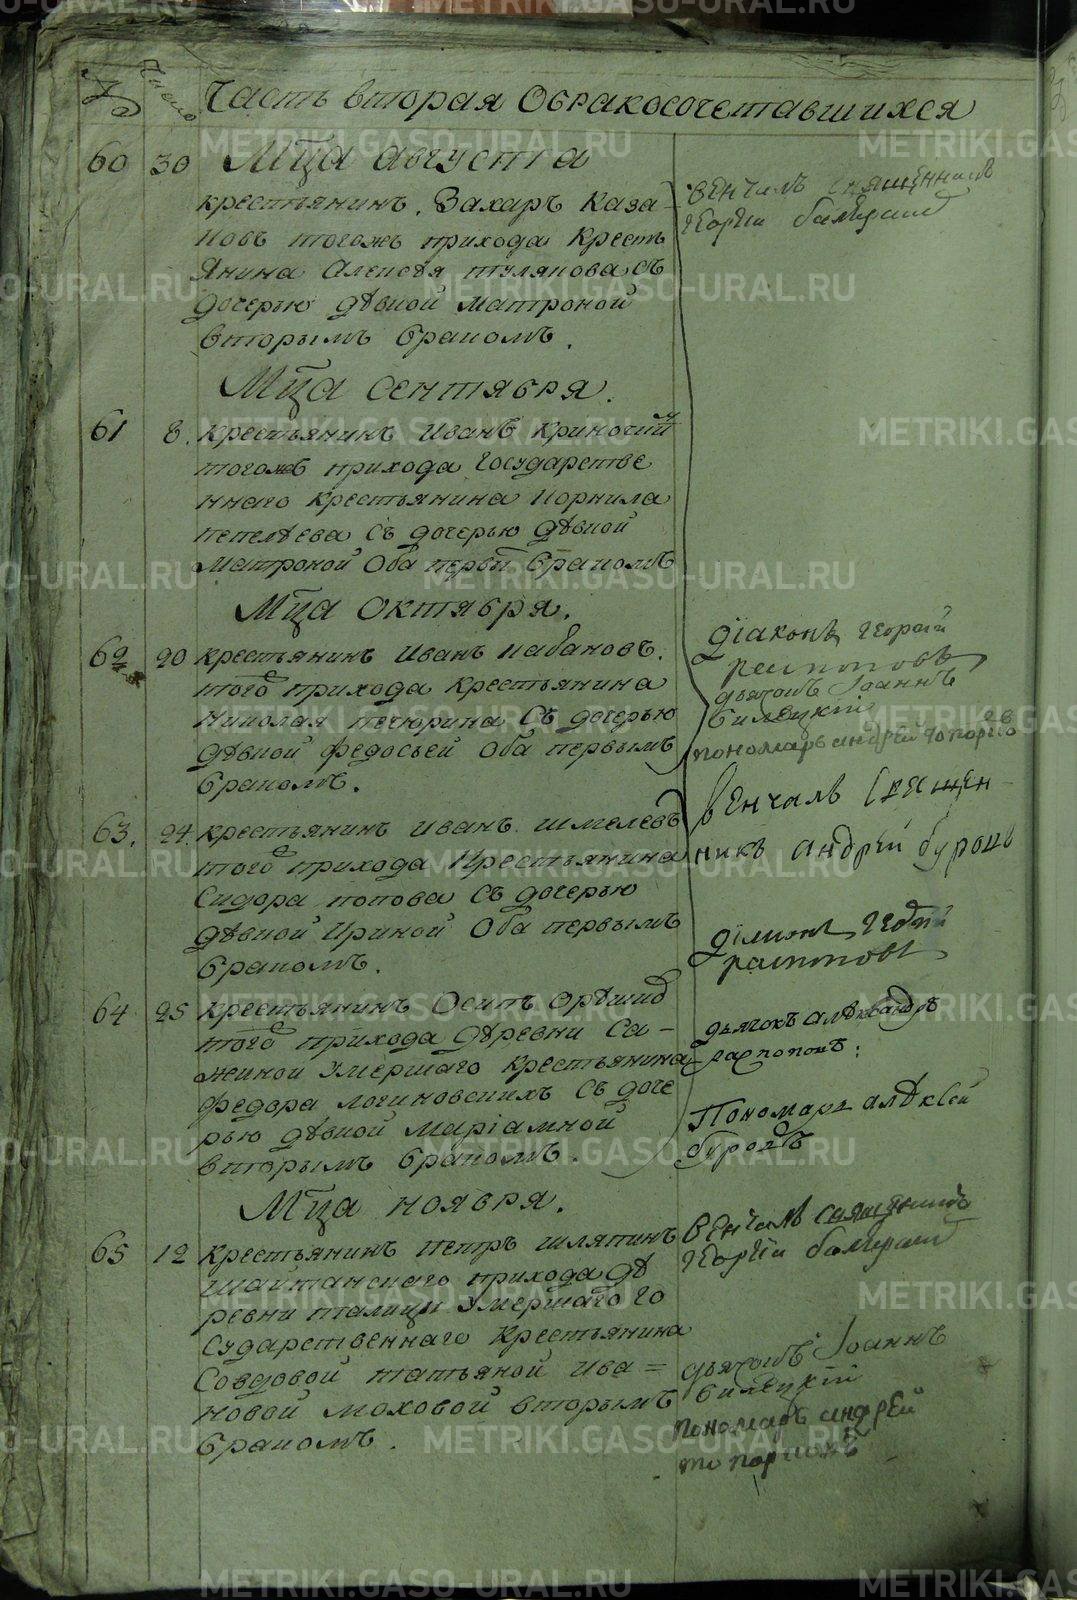 № Число Часть вторая Обракосочетавшихся
60 30 Мца августа
крестьянинъ. Захаръ Каза-
новъ тогожъ прихода Кресть
янина Алексѣя тулякова съ
дочерью дѣвкой матроной
вторымъ бракомъ.
венчалъ священникъ
Георгiи
Мца сентября.
61 8. крестьянинъ Иванъ
тогожъ прихода Государстве
ннаго крестьянина Корнила
пепелѣева съ дочерью дѣвкой
матроной Оба первы бракомъ
Мца октября.
62 20 крестьянинъ Иванъ Кабановъ.
того прихода крестьянина
Николая печюрина съ дочерью
дѣвкой федосьей Оба первымъ
бракомъ.
дiаконъ Георгiй
распоповъ
дьячокъ Iоаннъ
билецкiй
пономарь андрей топорковъ
63. 24. крестьянинъ иванъ шмелевъ
того прихода Крестьянина
Сидора попова съ дочерью
дѣвкой Ириной Оба первымъ
бракомъ.
Венчалъ Священ-
никъ андрей буровъ
дiаконъ Георгiй
распоповъ
64 25 крестьянинъ Осипъ
того прихода дѣревни Са-
жиной умершаго крестьянина
федора логиновскихъ съ доче
рью дѣвкой марiамной
вторымъ бракомъ.
дьячокъ алѣксандръ
распоповъ.
Пономарь алѣксей
буровъ
Мца ноября.
65 12 крестьянинъ петръ шляпинъ
шайтанскаго прихода дѣ
ревни талицы умершаго го
сударственнаго крестьянина
Совдовой татьяной ива=
новой моховой вторымъ
бракомъ.
венчалъ священникъ
Георгiи
дьячокъ Iоаннъ
билецкiй
пономарь андрей
топорковъ
METRIKI.GASO-URAL.RU